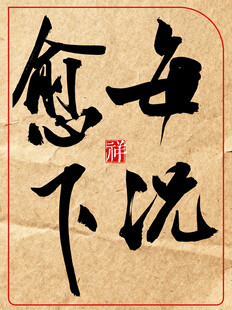 每况
愈下
祥